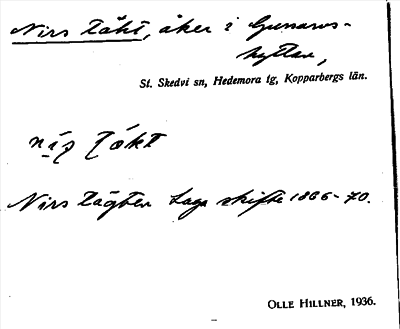 Nirs täkt, åker i Gunnars-
hyttan,
St. Skedvi sn, Hedemora tg, Kopparbergs län.
Nirs tägten Laga skifte 1866-70.
OLLE HILLNER, 1936.